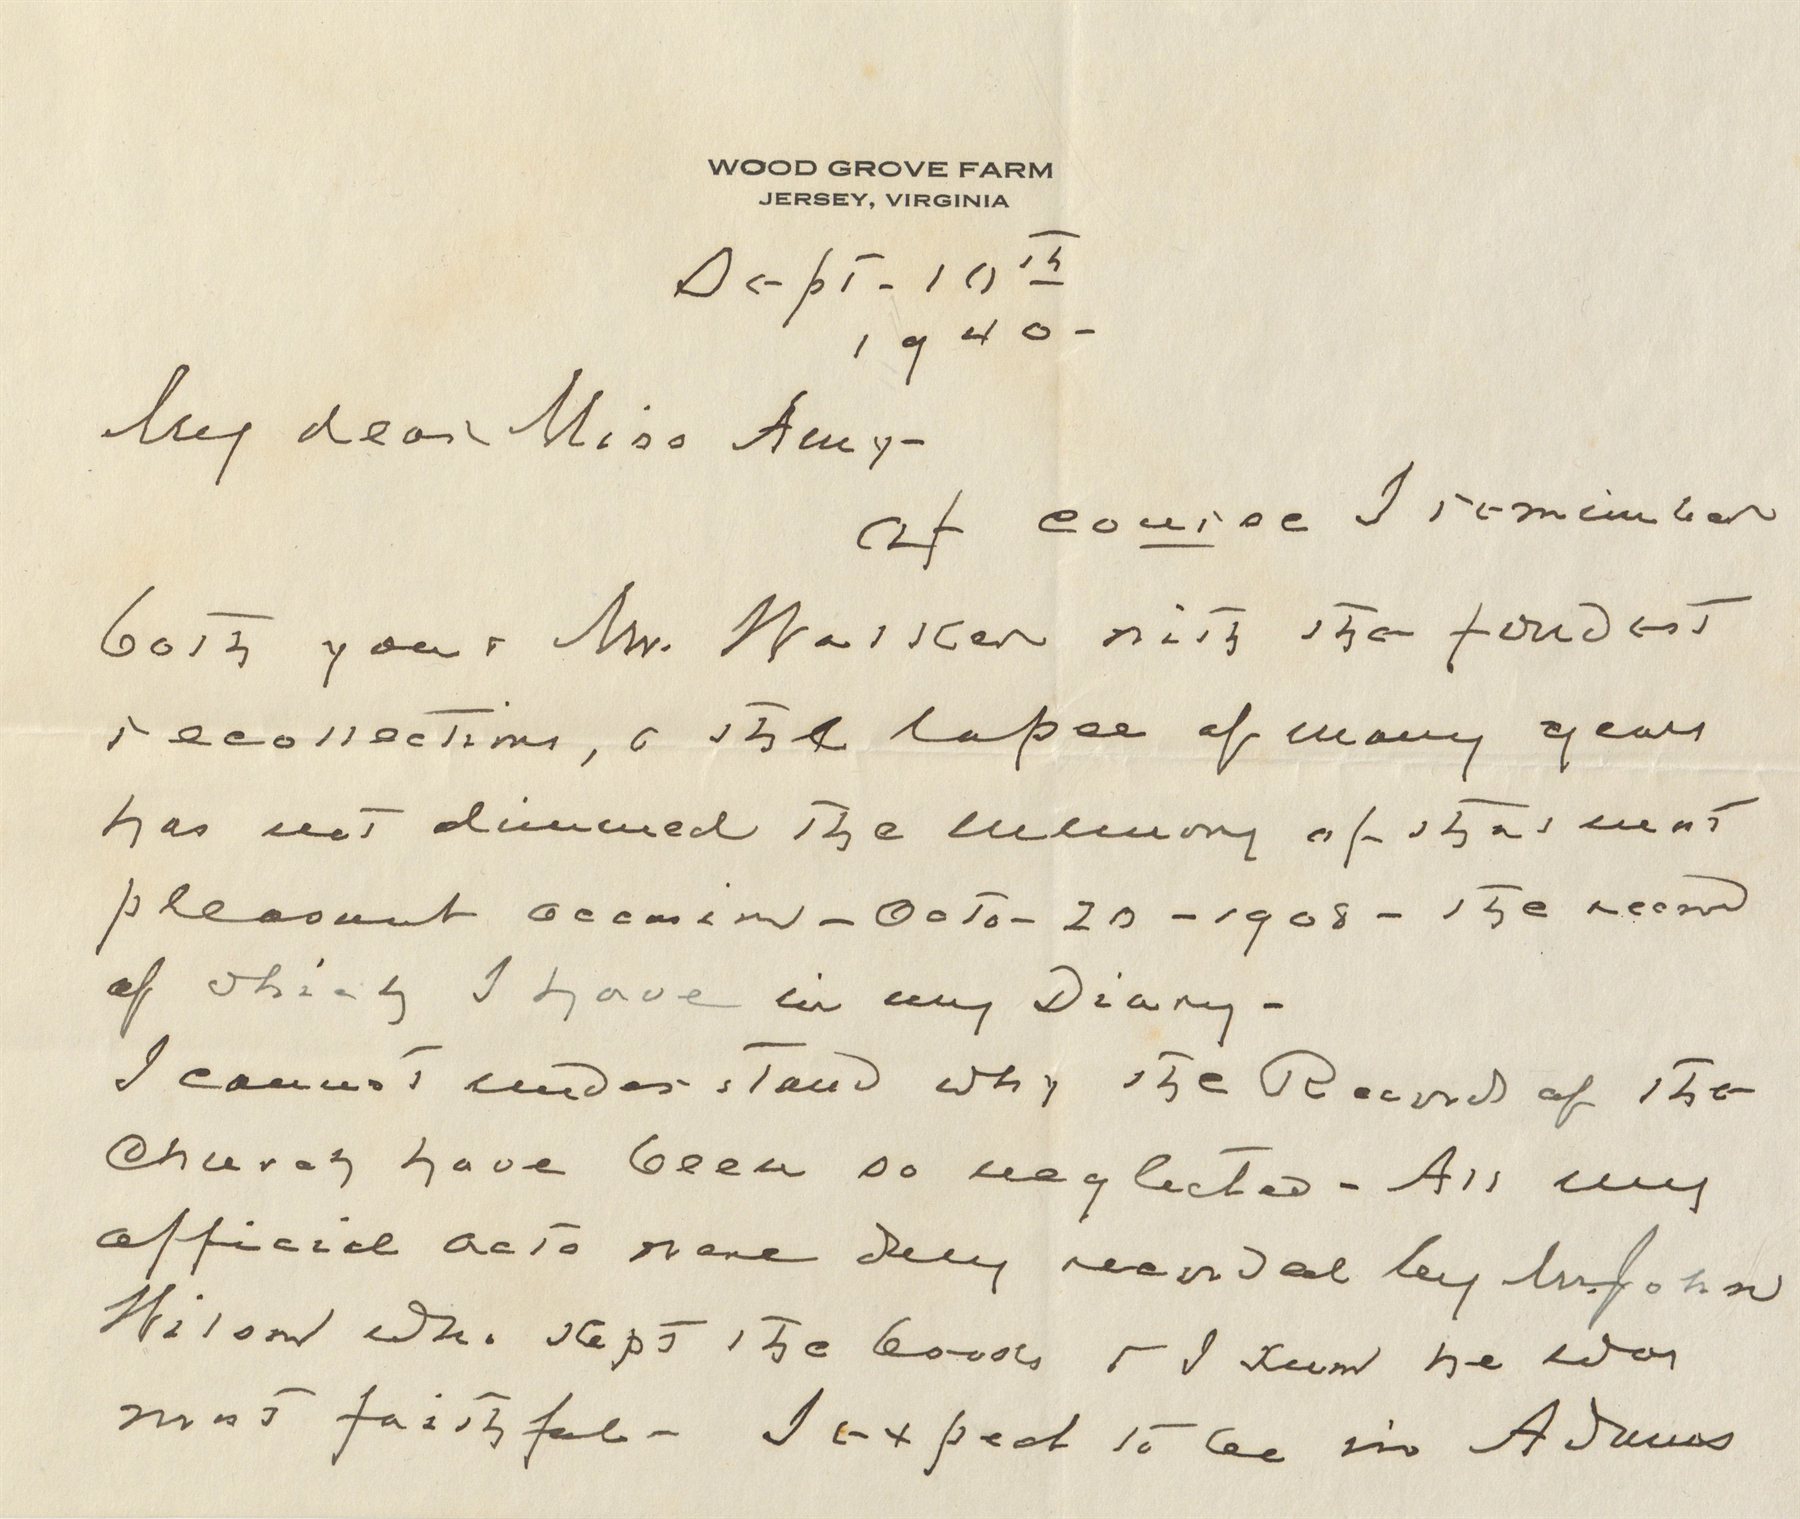 WOOD GROVE FARM
JERSEY, VIRGINIA
Sept. 10th
1940-
My dear Miss Amy-
Of course I remember
both you & Mr. Walker with the fondest
recollections, & the lapse of many years
has not dimmed the memory of that most
pleasant occasion - Octo- 20 - 1908 - the record
of which I have in my Diary -
I cannot understand why the Records of the
Church have been so neglected - All my
official acts were duly recorded by Mr. John
Wilson who kept the books & I know he was
most faithful - I expect to be in Adams